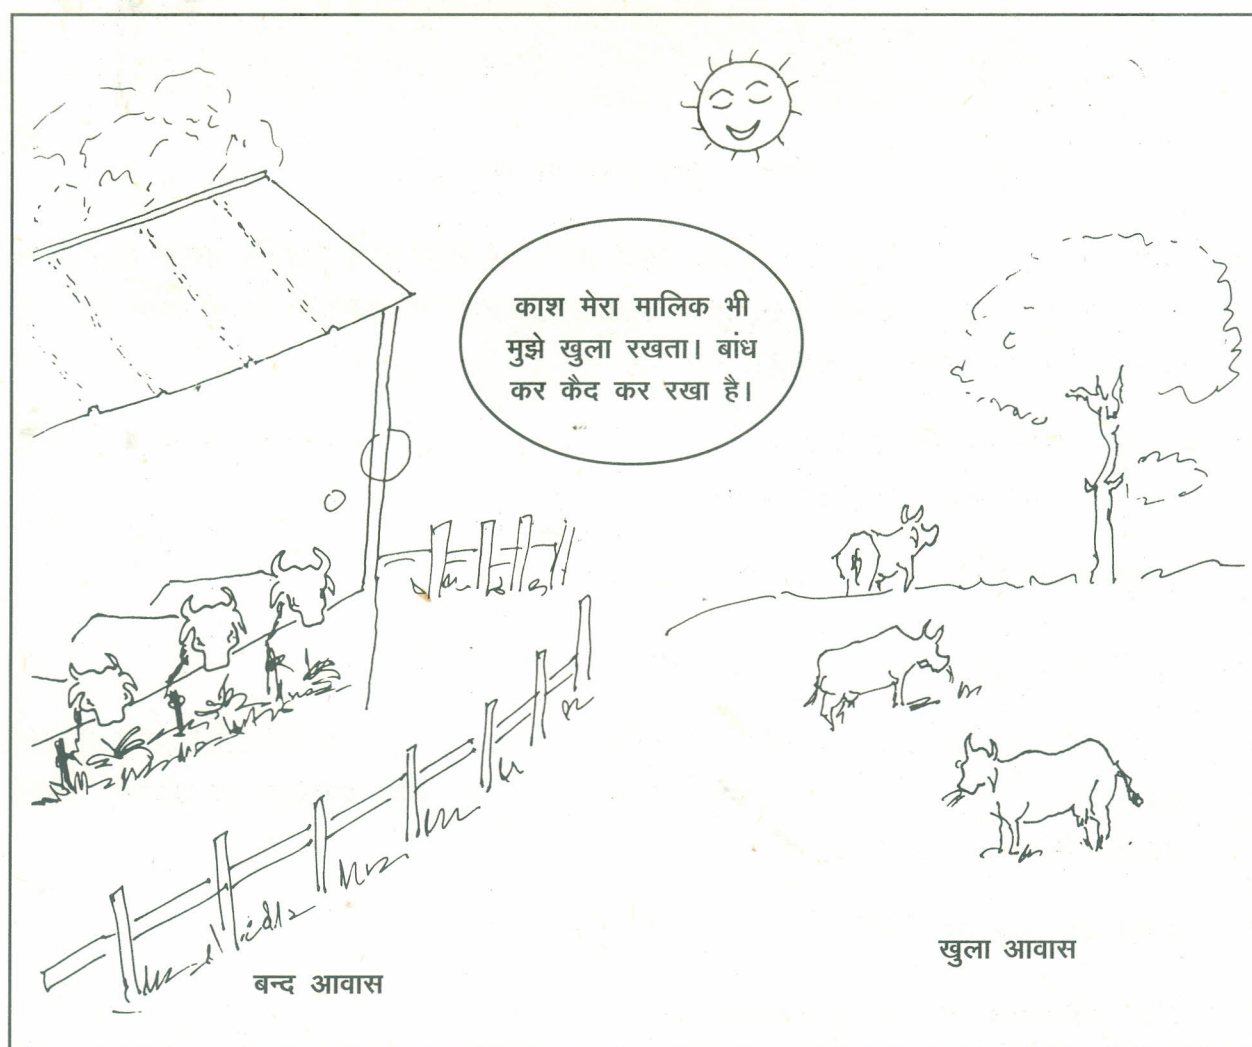 काश मेरा मालिक भी
मुझे खुला रखता। बांध
कर कैद कर रखा है।
खुला आवास
बन्द आवास